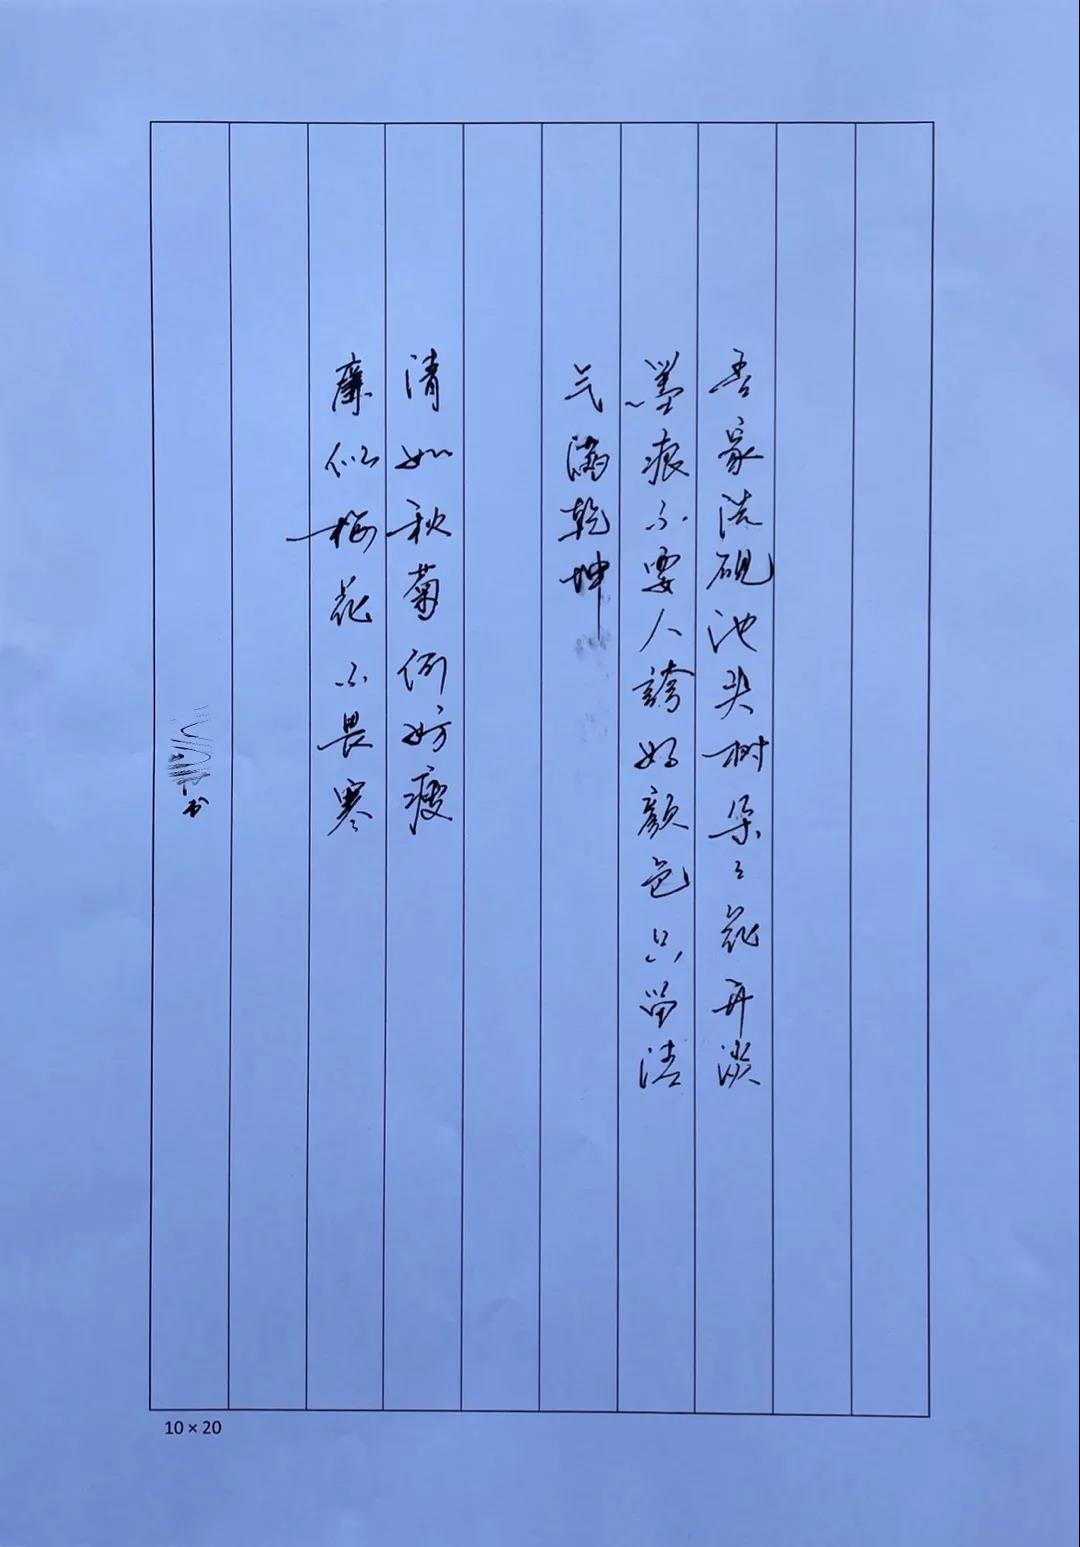 吾家洗砚池头树朵々花开淡
墨痕不要人誇好颜色只留清
气满乾坤
清如秋菊何妨瘦
廉似梅花不畏寒
书
10×20